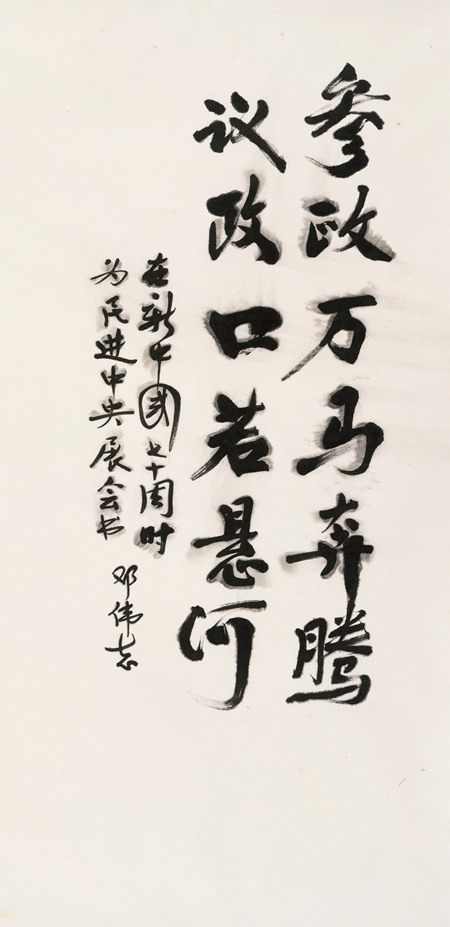 参政万马奔腾
议政口若悬河
在新中国七十周时
为民进中央展会书
邓伟志